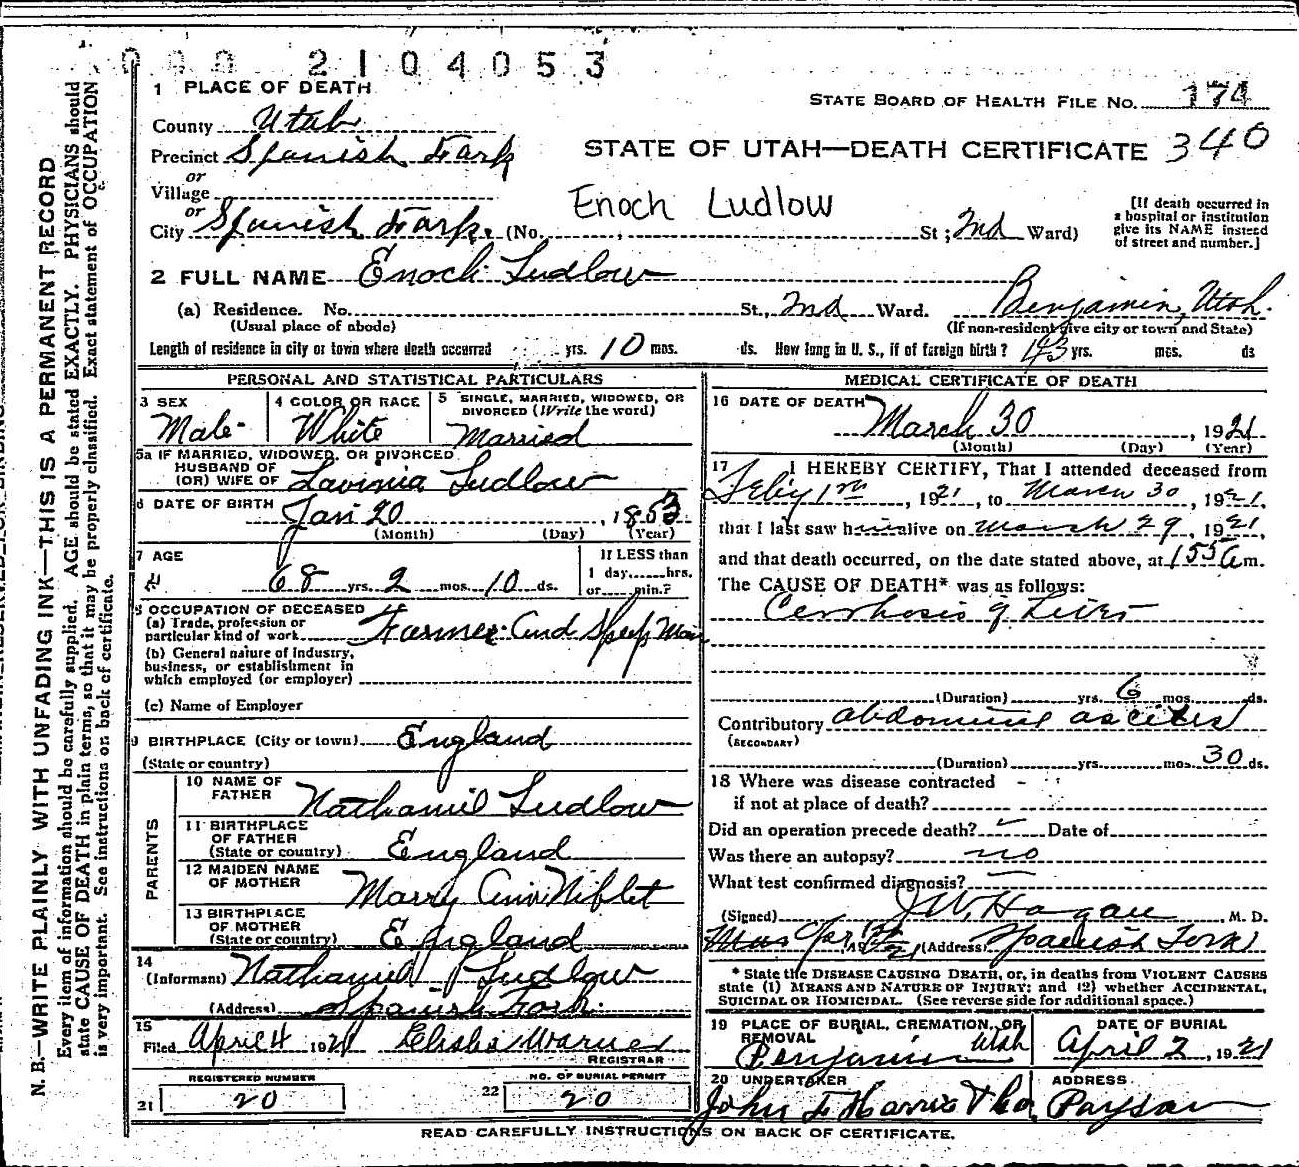 000 2104053
1 PLACE OF DEATH
STATE BOARD OF HEALTH FILE NO. 174
County Utah
340
Precinct Spanish Fork
STATE OF UTAH—DEATH CERTIFICATE
or
Village
or
Enoch Ludlow
City Spanish Fork. (No. , St; 2nd Ward)
[If death occurred in
a hospital or institution
give its NAME instead
of street and number.]
2 FULL NAME Enoch Ludlow
(a) Residence. No. St., 2nd Ward. Benjamin, Utah.
(Usual place of abode) (If non-resident give city or town and State)
Length of residence in city or town where death occurred yrs. 10 mos. ds. How long in U. S., if of foreign birth? 43 yrs. mos. ds
PERSONAL AND STATISTICAL PARTICULARS
3 SEX
Male
4 COLOR OR RACE
White
5 SINGLE, MARRIED, WIDOWED, OR
DIVORCED (Write the word)
Married
5a IF MARRIED, WIDOWED, OR DIVORCED
HUSBAND OF
(OR) WIFE OF Lavinia Ludlow
6 DATE OF BIRTH Jan 20, 1853
(Month) (Day) (Year)
7 AGE
68 yrs. 2 mos. 10 ds.
If LESS than
1 day,......hrs.
or......min.?
8 OCCUPATION OF DECEASED
(a) Trade, profession or
particular kind of work Farmer and Sheep Man
(b) General nature of Industry,
business, or establishment in
which employed (or employer)
(c) Name of Employer
9 BIRTHPLACE (City or town) England
(State or country)
PARENTS
10 NAME OF
FATHER Nathaniel Ludlow
11 BIRTHPLACE
OF FATHER
(State or country) England
12 MAIDEN NAME
OF MOTHER Marry Ann Niblet
13 BIRTHPLACE
OF MOTHER
(State or country) England
14
(Informant) Nathaniel J Ludlow
(Address) Spanish Fork.
15
Filed April 4 1921 Elisha Warner
REGISTRAR
REGISTERED NUMBER
21 20
NO. OF BURIAL PERMIT
22 20
MEDICAL CERTIFICATE OF DEATH
16 DATE OF DEATH
March 30, 1921
(Month) (Day) (Year)
17 I HEREBY CERTIFY, That I attended deceased from
Feby 1st, 1921, to March 30, 1921,
that I last saw him alive on March 29, 1921,
and that death occurred, on the date stated above, at 155 a m.
The CAUSE OF DEATH* was as follows:
Cerrhosis of Liver
(Duration) yrs. 6 mos. ds.
Contributory abdominal ascites
(SECONDARY)
(Duration) yrs. mos. 30 ds.
18 Where was disease contracted -
if not at place of death?
Did an operation precede death? Date of
Was there an autopsy? no
What test confirmed diagnosis?
(Signed) J W Hagan M. D.
(Address) Spanish Fork
* State the DISEASE CAUSING DEATH, or, in deaths from VIOLENT CAUSES
state (1) MEANS AND NATURE OF INJURY; and (2) whether ACCIDENTAL,
SUICIDAL OR HOMICIDAL. (See reverse side for additional space.)
19 PLACE OF BURIAL, CREMATION, OR
REMOVAL
Benjamin Utah
DATE OF BURIAL
April 2, 1921
20 UNDERTAKER
John F Harris & Co.
ADDRESS
Payson
READ CAREFULLY INSTRUCTIONS ON BACK OF CERTIFICATE.
N. B.—WRITE PLAINLY WITH UNFADING INK—THIS IS A PERMANENT RECORD
Every item of information should be carefully supplied. AGE should be stated EXACTLY. PHYSICIANS should
state CAUSE OF DEATH in plain terms, so that it may be properly classified. Exact statement of OCCUPATION
is very important. See instructions on back of certificate.